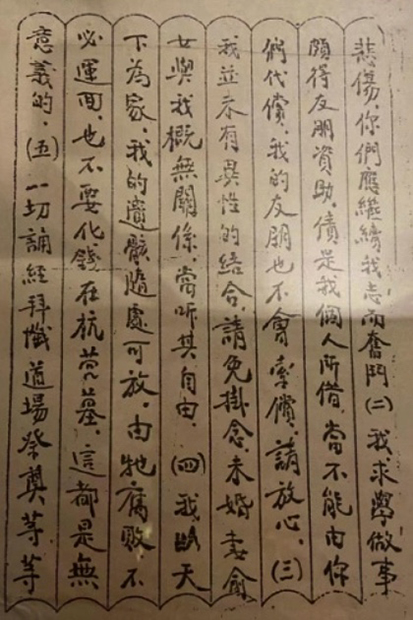 悲傷，你們應繼續我志而奮鬥(二)我求學做事
頗得友朋資助，債是我個人所借，當不能由你
們代償，我的友朋也不會索償，請放心。(三)
我並未有異性的結合，請免掛念，未婚妻俞
女與我概無關係，當听其自由。(四)我以天
下為家，我的遺骸隨處可放，由牠腐敗，不
必運囬，也不要化錢在杭營墓，這都是無
意義的(五)一切誦經拜懺道場祭奠等等